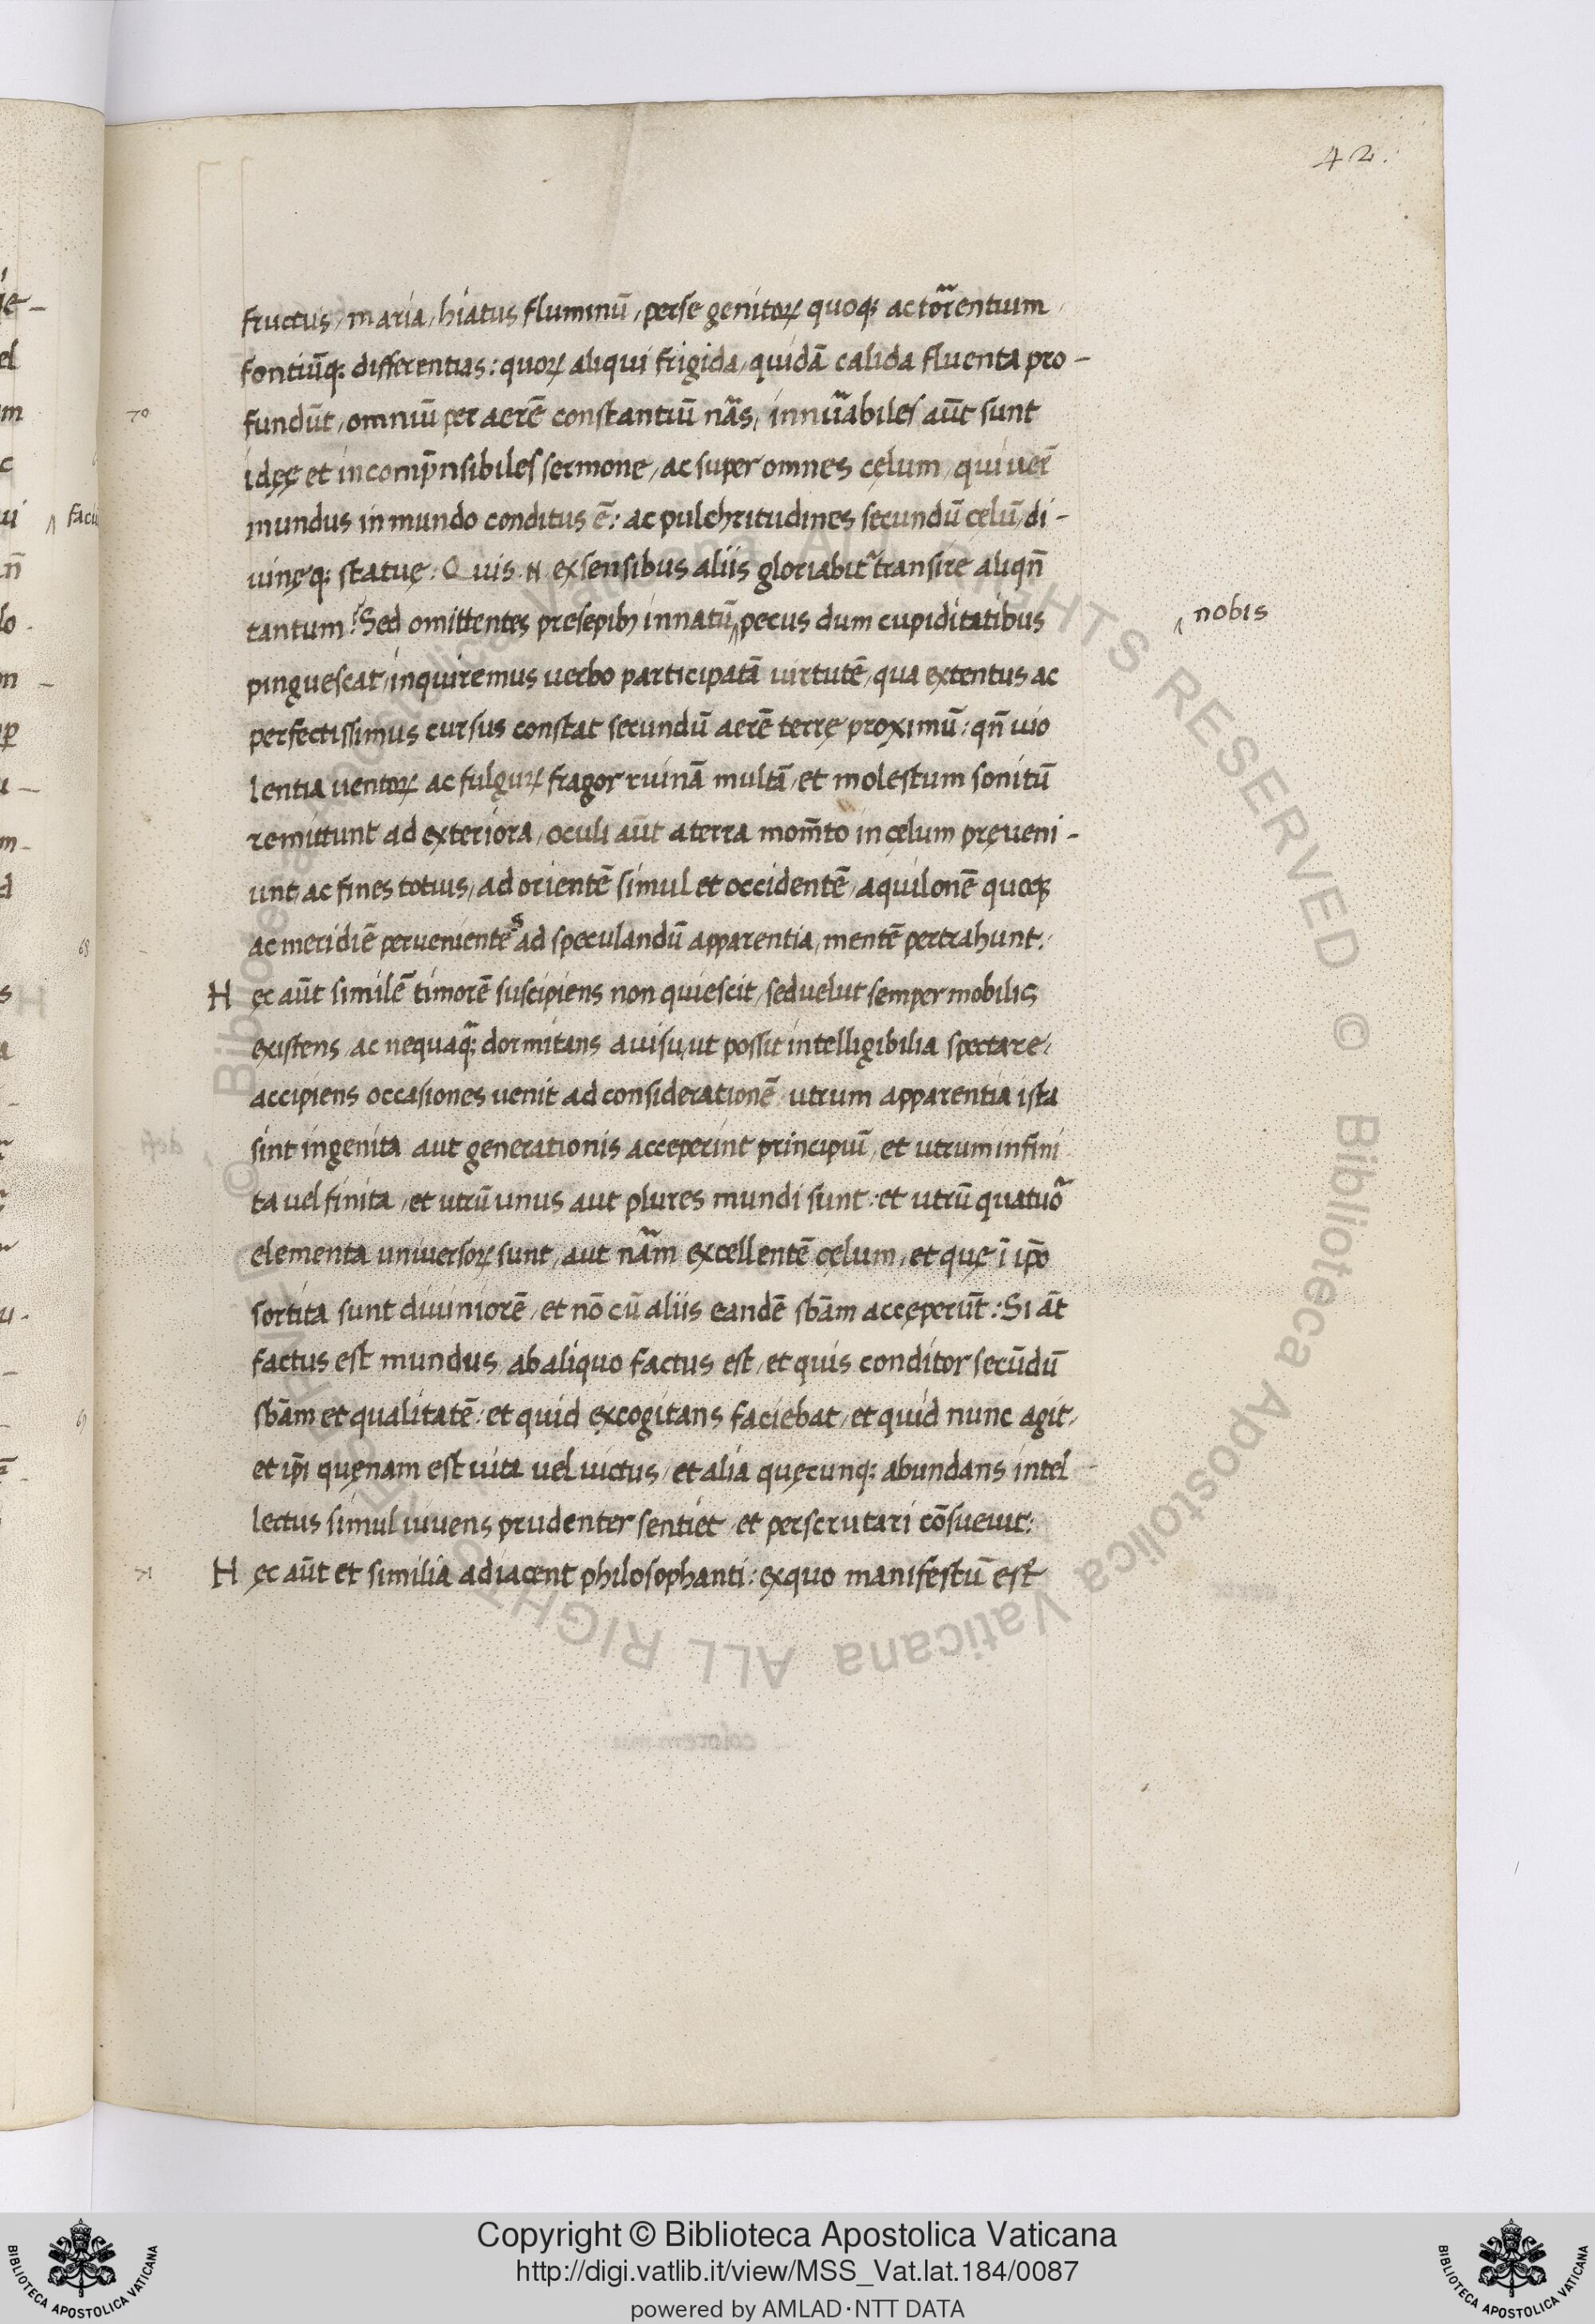 42.
fructus, maria, hiatus fluminū, perse genitoꝝ quoq; ac torrentium
fontiūq; differentias: quoꝝ aliqui frigida, quidā calida fluenta pro-
70
fundūt, omniū per aerē constantiū nãs, innũabiles aūt sunt
idęę et incomp̄nsibiles sermone, ac super omnes cęlum, qui uerē
mundus in mundo conditus ē: ac pulchritudines secundū cęlū, di-
uinęq; statuę: Quis .N. ex sensibus aliis gloriabit᷑ transire aliqñ
tantum? Sed omittentes presepibꝫ innatū ‸ pecus dum cupiditatibus
‸ nobis
pinguescat, inquiremus uerbo participatā uirtutē, qua extentus ac
perfectissimus cursus constat secundū aerē terrę proximū: qñ uio
lentia uentoꝝ ac fulguꝝ fragor ruinā multā, et molestum sonitū
remittunt ad exteriora, oculi aūt a terra mom̄to in cęlum pręueni-
unt, ac fines totius, ad orientē simul et occidentē, aquilonē quoq;
68
ac meridiē peruenientes ad speculandū apparentia, mentē pertrahunt:
Hęc aūt similē timorē suscipiens non quiescit, sed uelut semper mobilis
existens, ac nequaq̃; dormitans a uisu, ut possit intelligibilia spectare,
accipiens occasiones uenit ad considerationē utrum apparentia ista
sint ingenita aut generationis acceperint principiū, et utrum infini
ta uel finita, et utrū unus aut plures mundi sunt: et utrū quatuor
elementa uniuersoꝝ sunt, aut nãm excellentē cęlum, et quę ī ip̄o
sortita sunt diuiniorē, et nō cū aliis eandē sb̄am accęperūt: Si āt
factus est mundus, ab aliquo factus est, et quis conditor secūdū
sb̄am et qualitatē: et quid excogitans faciebat, et quid nunc agit,
et ip̄i quęnam est uita uel uictus, et alia quęcunq; abundans intel
lectus simul uiuens prudenter sentiet et perscrutari cōsueuit:
71
Hęc aūt et similia adiacent philosophanti: ex quo manifestū est
Copyright © Biblioteca Apostolica Vaticana
http://digi.vatlib.it/view/MSS_Vat.lat.184/0087
powered by AMLAD·NTT DATA
BIBLIOTECA APOSTOLICA VATICANA
BIBLIOTECA APOSTOLICA VATICANA
© Biblioteca Apostolica Vaticana ALL RIGHTS RESERVED © Biblioteca Apostolica Vaticana ALL RIGHTS RESERVED